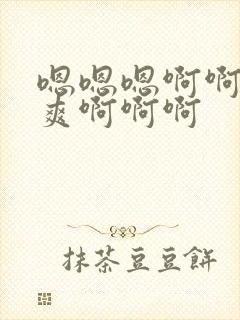 嗯嗯嗯啊啊
爽啊啊啊
抹茶豆豆餅